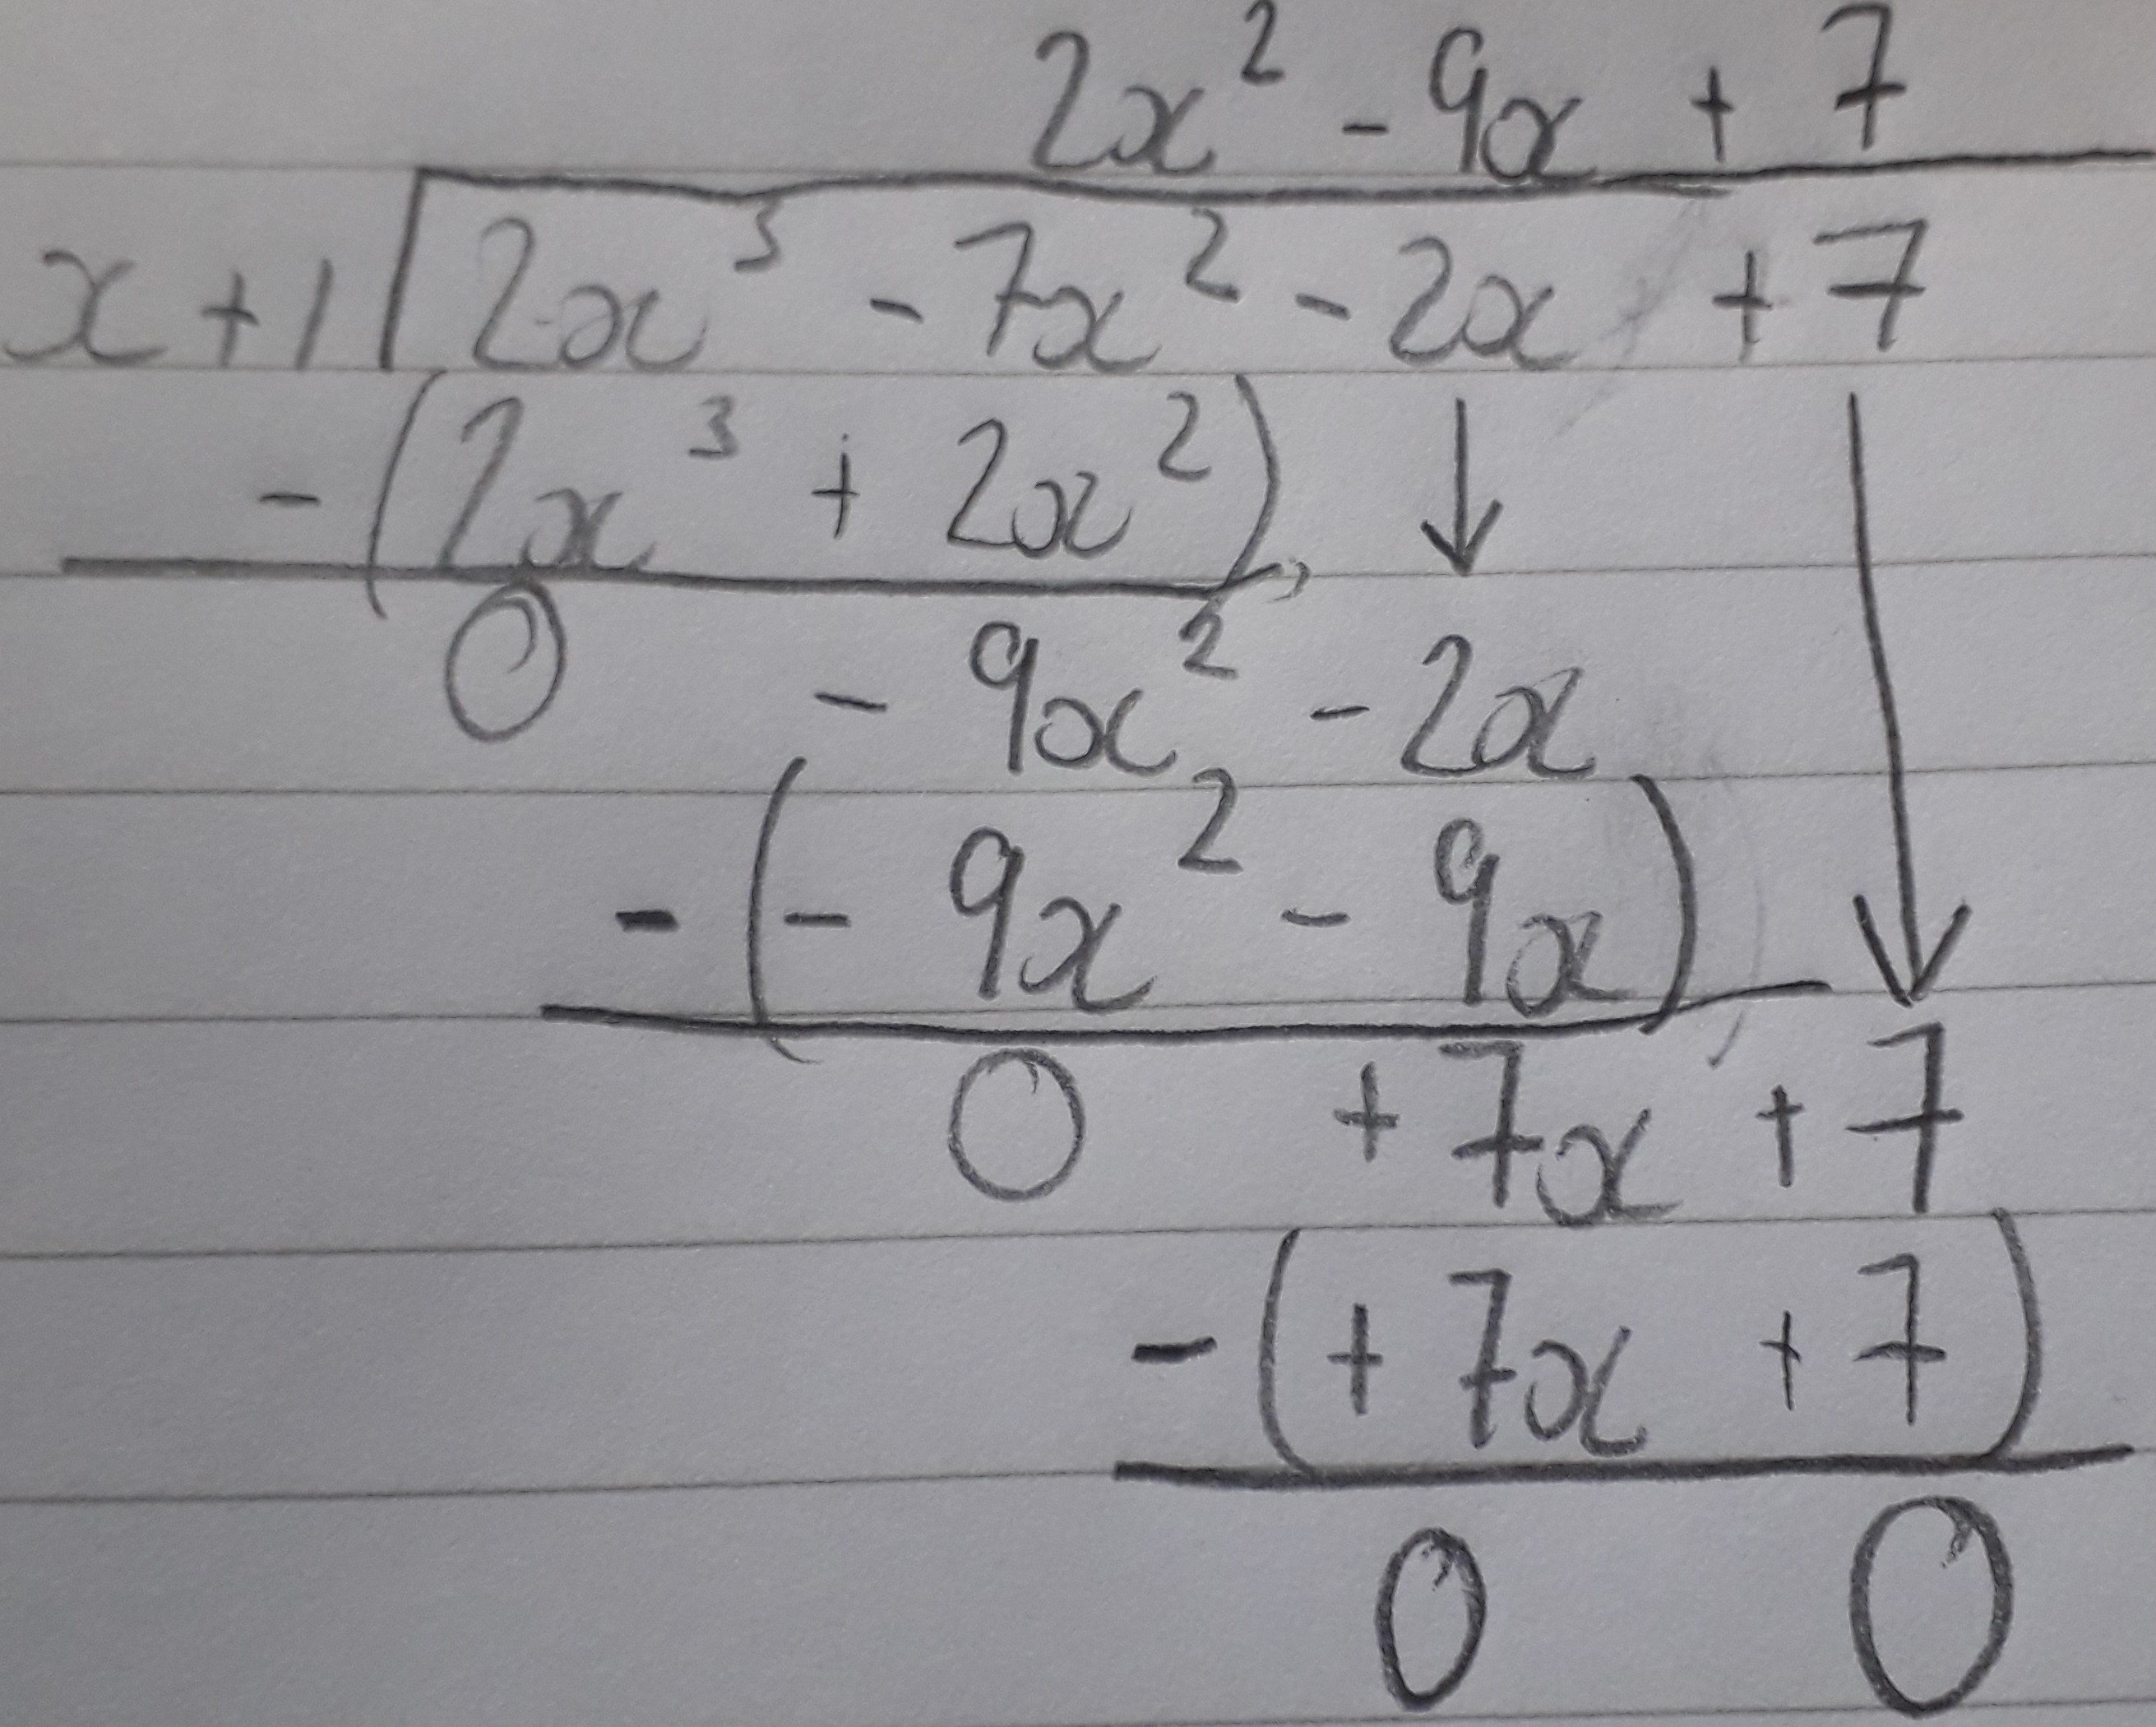 2x² - 9x + 7
x + 1 2x³ - 7x² - 2x + 7
- (2x³ + 2x²) ↓
0 - 9x² - 2x
- (- 9x² - 9x) ↓
0 + 7x + 7
- (+ 7x + 7)
0 0